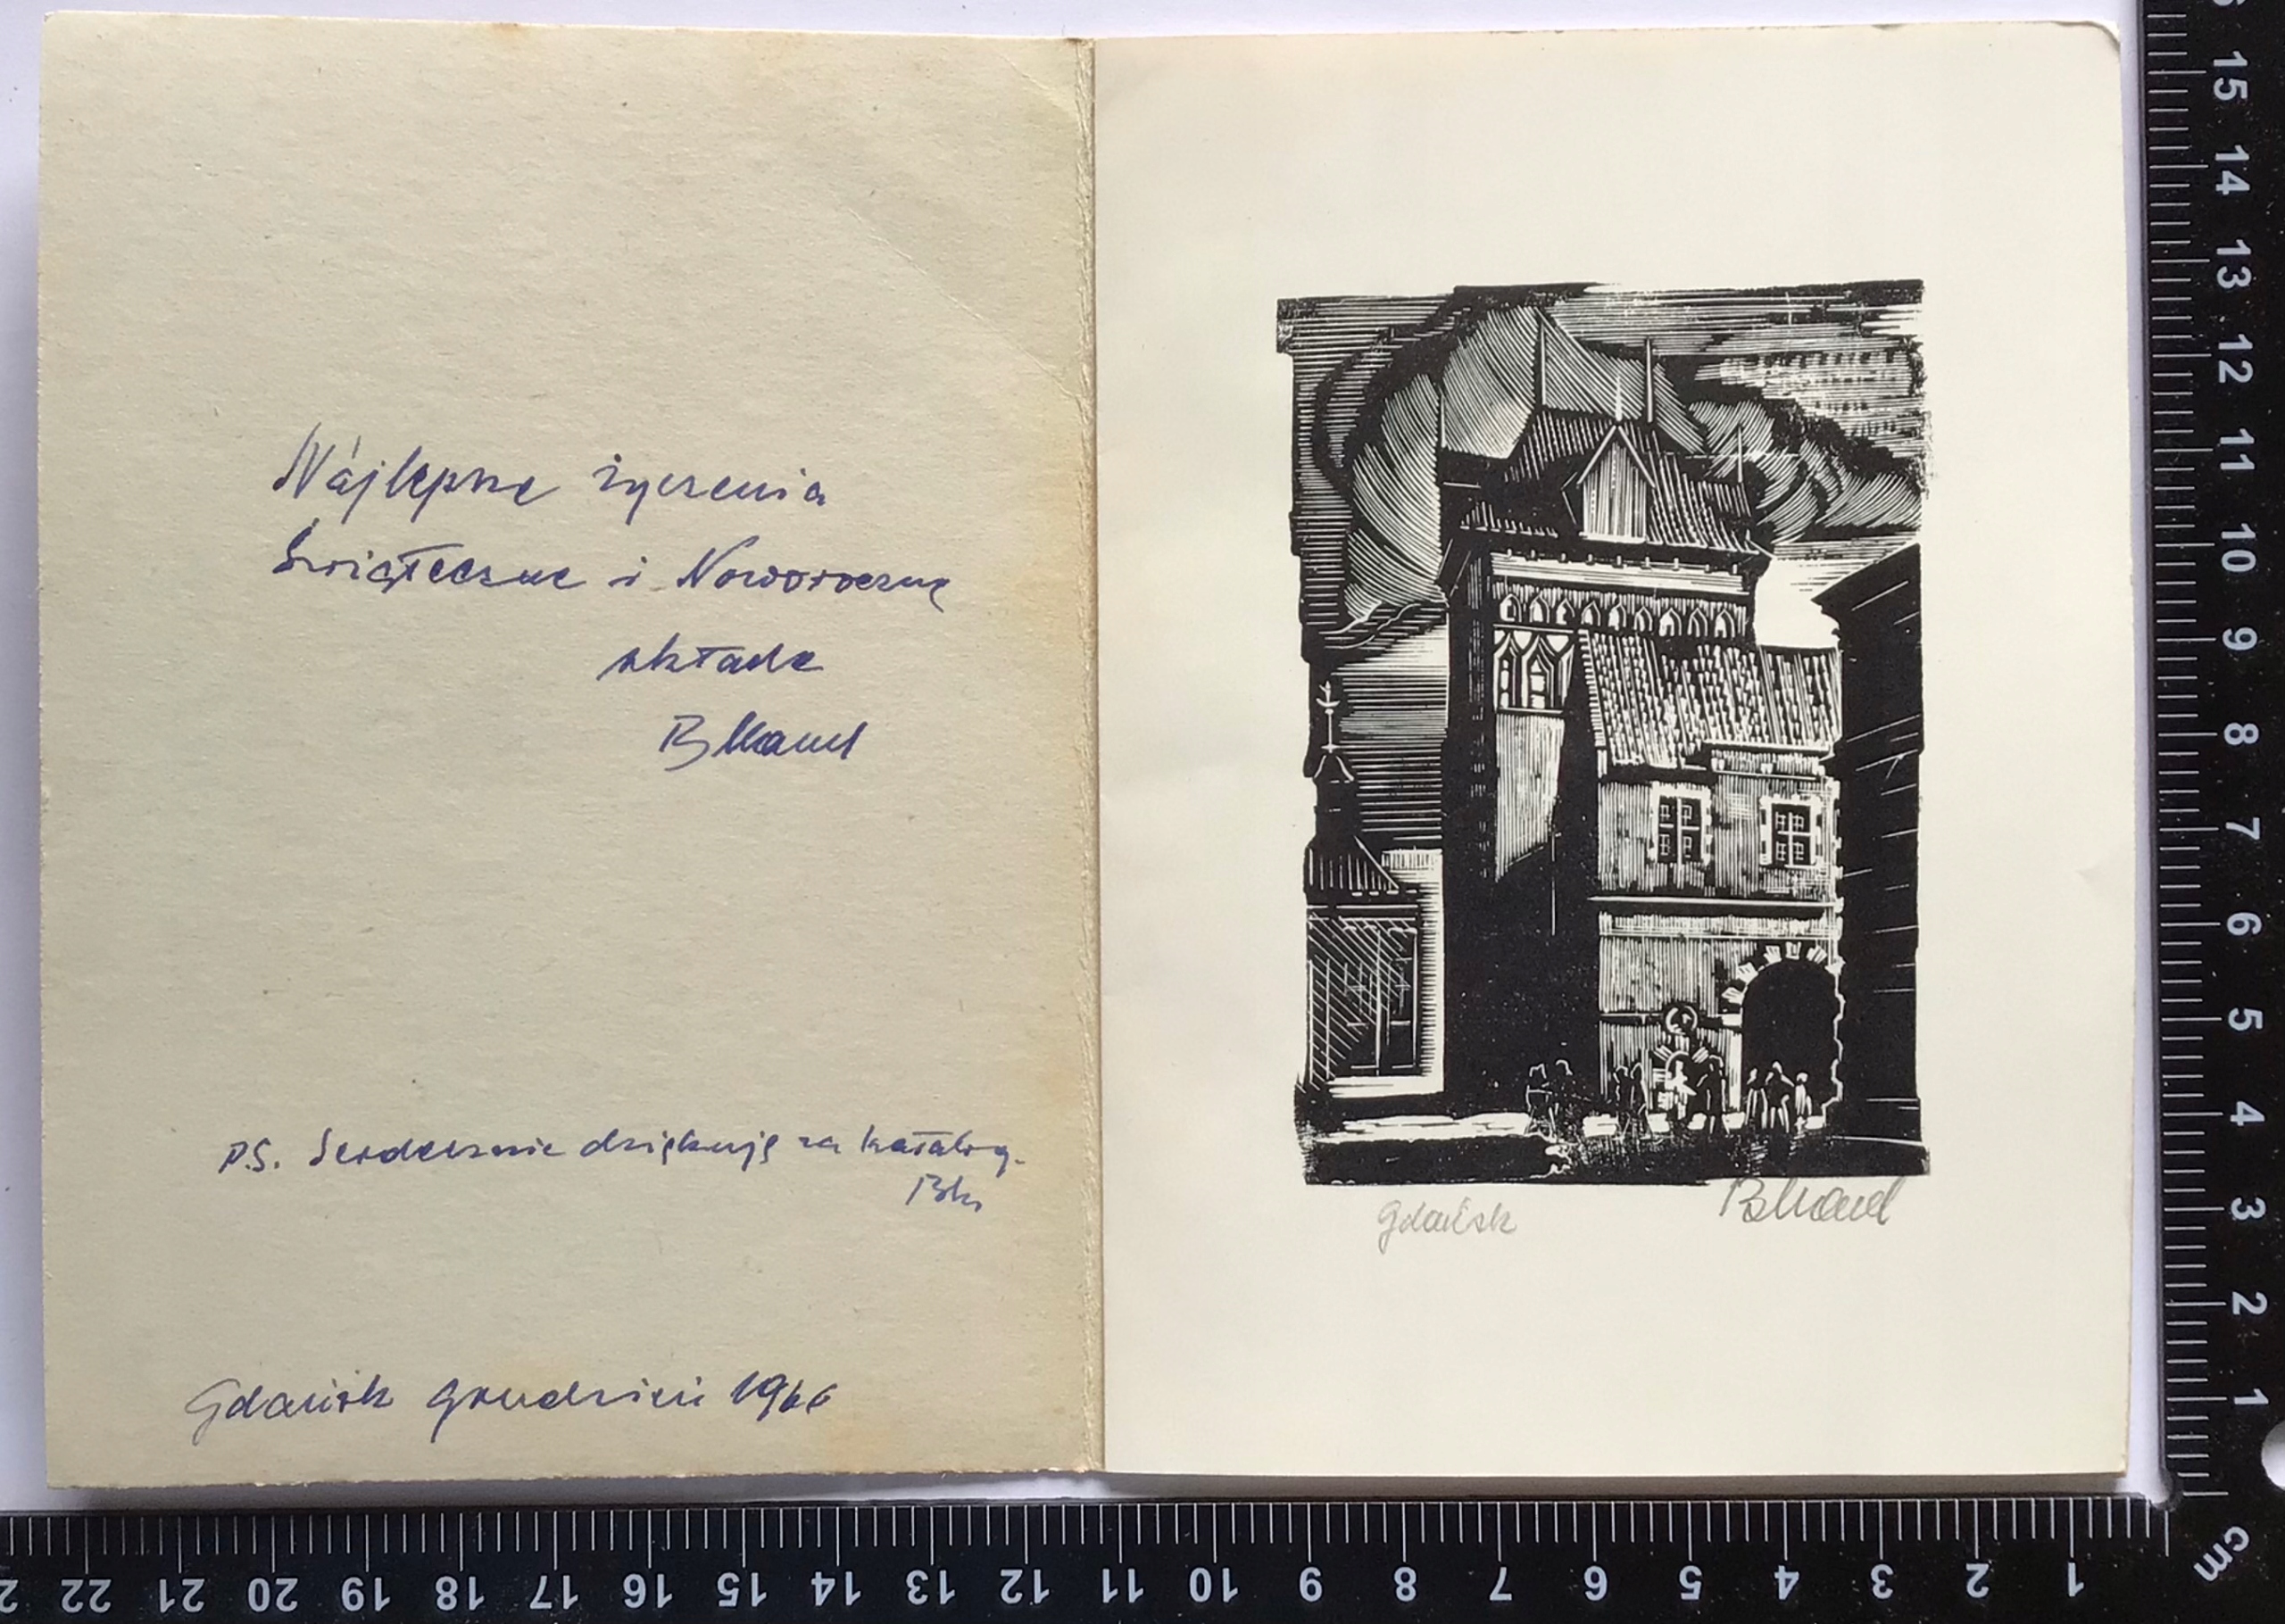 Najlepsze życzenia
Świąteczne i Noworoczne
składa
P.S. Serdecznie dziękuję za katalog.
Gdańsk grudzień 1966
Gdańsk
15
14
13
12
11
10
9
8
7
6
5
4
3
2
1
cm
22 21 20 19 18 17 16 15 14 13 12 11 10 9 8 7 6 5 4 3 2 1